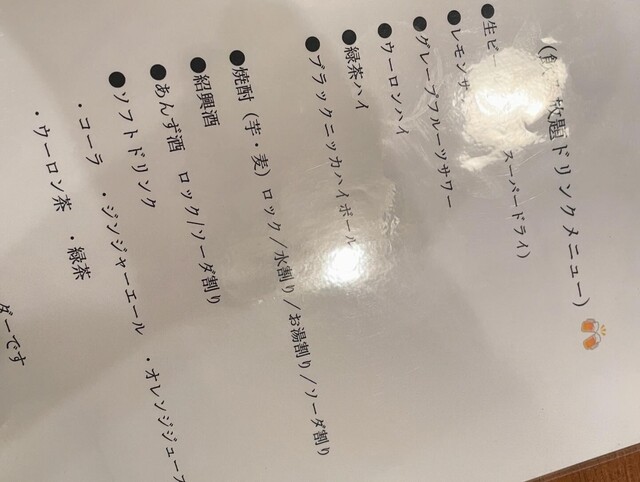 放題ドリンクメニュー)
●生ビ スーパードライ)
●レモンサ
●グレープフルーツサワー
●ウーロンハイ
●緑茶ハイ
●ブラックニッカハイボール
●焼酎(芋・麦)ロック/水割り/お湯割り/ソーダ割り
●紹興酒
●あんず酒 ロック/ソーダ割り
●ソフトドリンク
・コーラ ・ジンジャーエール ・オレンジジュース
・ウーロン茶 ・緑茶
ダーです